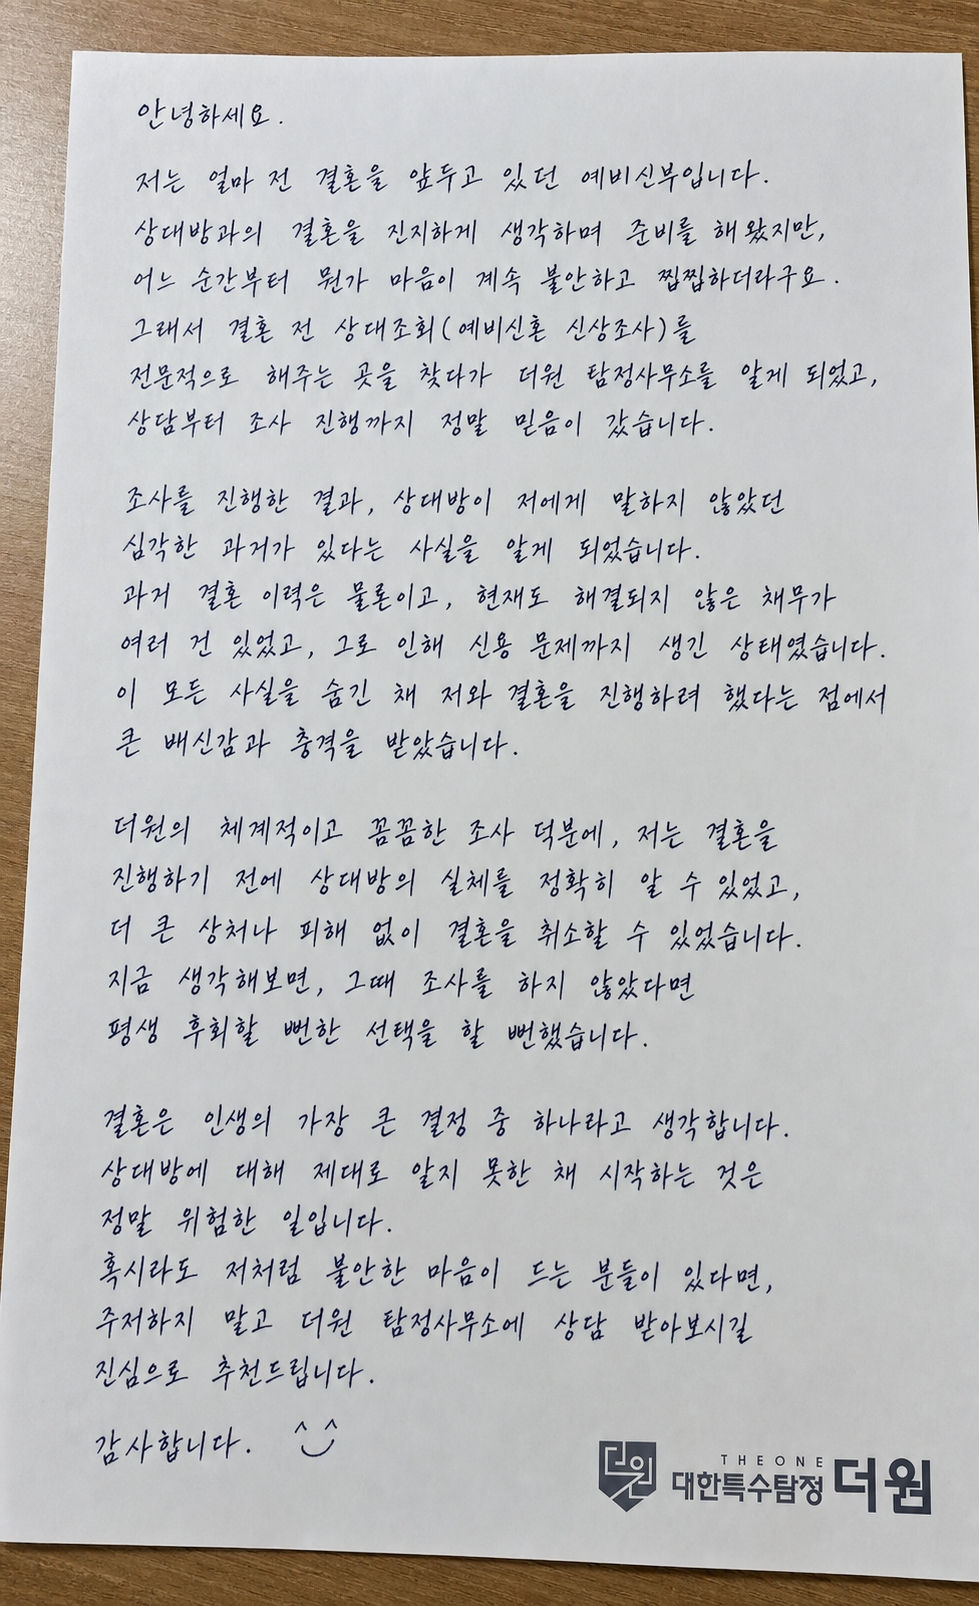 안녕하세요.
저는 얼마 전 결혼을 앞두고 있던 예비신부입니다.
상대방과의 결혼을 진지하게 생각하며 준비를 해왔지만,
어느 순간부터 뭔가 마음이 계속 불안하고 찝찝하더라구요.
그래서 결혼 전 상대조회(예비신혼 신상조사)를
전문적으로 해주는 곳을 찾다가 더원 탐정사무소를 알게 되었고,
상담부터 조사 진행까지 정말 믿음이 갔습니다.
조사를 진행한 결과, 상대방이 저에게 말하지 않았던
심각한 과거가 있다는 사실을 알게 되었습니다.
과거 결혼 이력은 물론이고, 현재도 해결되지 않은 채무가
여러 건 있었고, 그로 인해 신용 문제까지 생긴 상태였습니다.
이 모든 사실을 숨긴 채 저와 결혼을 진행하려 했다는 점에서
큰 배신감과 충격을 받았습니다.
더원의 체계적이고 꼼꼼한 조사 덕분에, 저는 결혼을
진행하기 전에 상대방의 실체를 정확히 알 수 있었고,
더 큰 상처나 피해 없이 결혼을 취소할 수 있었습니다.
지금 생각해보면, 그때 조사를 하지 않았다면
평생 후회할 뻔한 선택을 할 뻔했습니다.
결혼은 인생의 가장 큰 결정 중 하나라고 생각합니다.
상대방에 대해 제대로 알지 못한 채 시작하는 것은
정말 위험한 일입니다.
혹시라도 저처럼 불안한 마음이 드는 분들이 있다면,
주저하지 말고 더원 탐정사무소에 상담 받아보시길
진심으로 추천드립니다.
감사합니다. ^‿^
더원
THEONE
대한특수탐정 더원